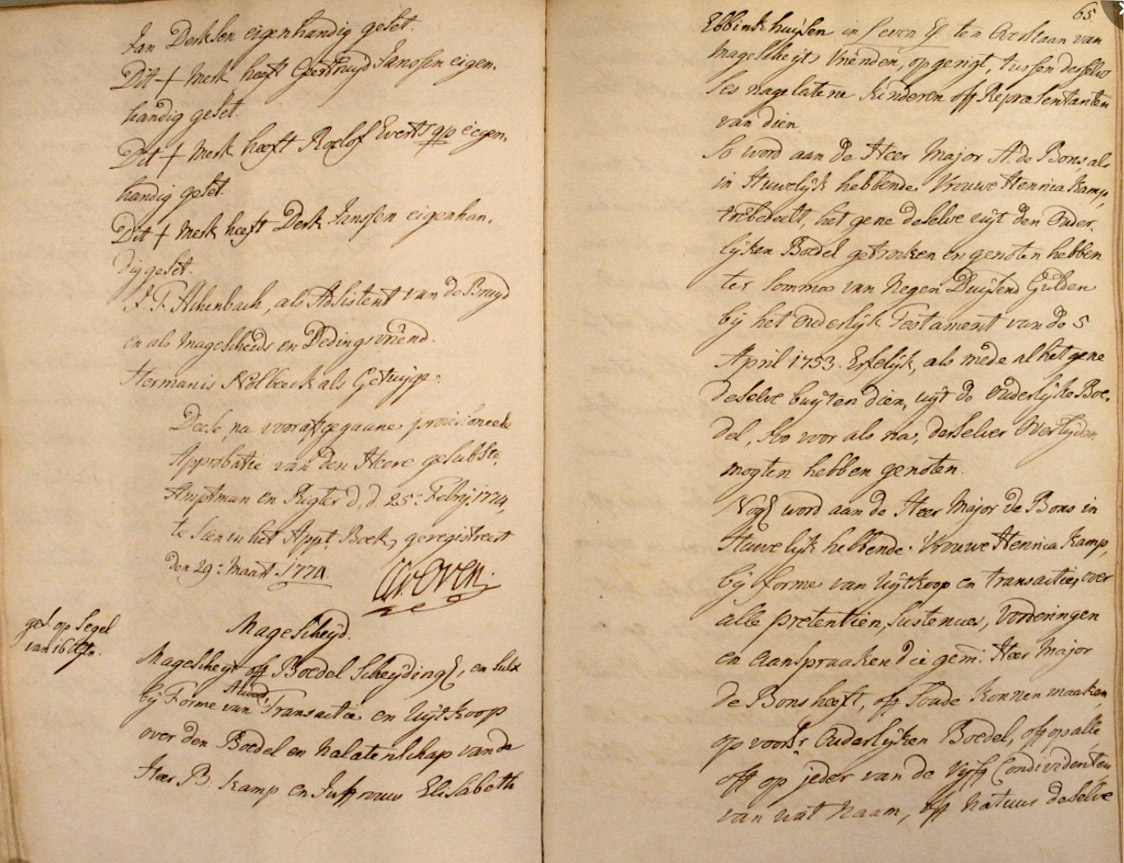 Jan Derksen eigenhandig geset.
Dit + Merk heeft Geertruyd Janssen eigen-
handig geset.
Dit + Merk heeft Roelof Everts eigen-
handig geset.
Dit + Merk heeft Derk Janssen eigenhan-
dig geset.
J. F. Ackenback, als Assistent van de Bruyd
en als Magescheids en Dedingsvriend.
Hermanis Nolbeek als Getuijge.
Dese, na voorafgegaane provisioneele
Approbatie van den Heere gesubste.
Amptman en Rigter d.d. 25: Febrij 1774,
te sien in het Appt. Boek, geregistreert
den 29: Maart 1774
ges. op Segel
van 16
Magescheijd.
Magescheijt off Boedel Scheijding, en sulx
bij Forme van Accoord Transactie en Uijtkoop
over den Boedel en Nalatenschap van de
Heer B. Kamp en Juffrouw Elisabeth
65
Ebbinkhuijsen in Leven ten Overstaan van
Magescheijts Vrienden, opgerigt, tussen derselve
ses nagelatene Kinderen off Repraesentanten
van dien.
So word aan de Heer Major A. de Bons, als
in Huwelijk hebbende Vrouwe Henrica Kamp,
toebedeelt, het gene deselve uijt den Ouder-
lijken Boedel getrocken en genoten hebben
ter Somma van Negen Duijsend Gulden
bij het Ouderlijk Testament van de 5
April 1753. Erfelijk, als mede al het gene
deselve buijten dien, uijt de Ouderlijke Boe-
del, soo voor als na, derselver Overlijden
mogten hebben genoten.
Nog word aan de Heer Major de Bons in
Huwelijk hebbende Vrouwe Henrica Kamp,
bij forme van Uijtkoop en transactie, over
alle pretentien, Sustenues, Vorderingen
en aanspraaken die gem: Heer Major
de Bons heeft, off Soude konnen maaken,
op voorsr. Ouderlijken Boedel, off op alle
off op jeder van de Vijff Condividenten
van wat Naam, off Natuur deselve